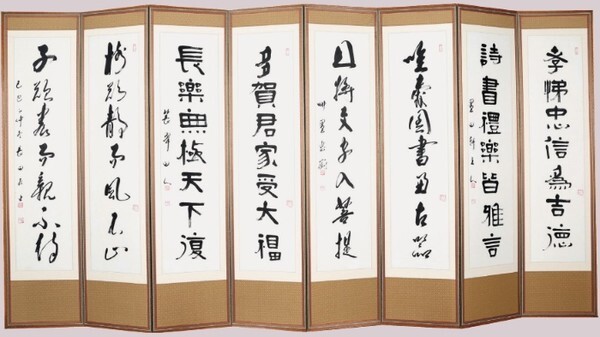 孝悌忠信為吉德
詩書禮樂皆雅言
唯愛圖書兼古器
且將文字入菩提
多賀君家受大福
長樂無極天下復
樹欲靜而風不止
子欲養而親不待